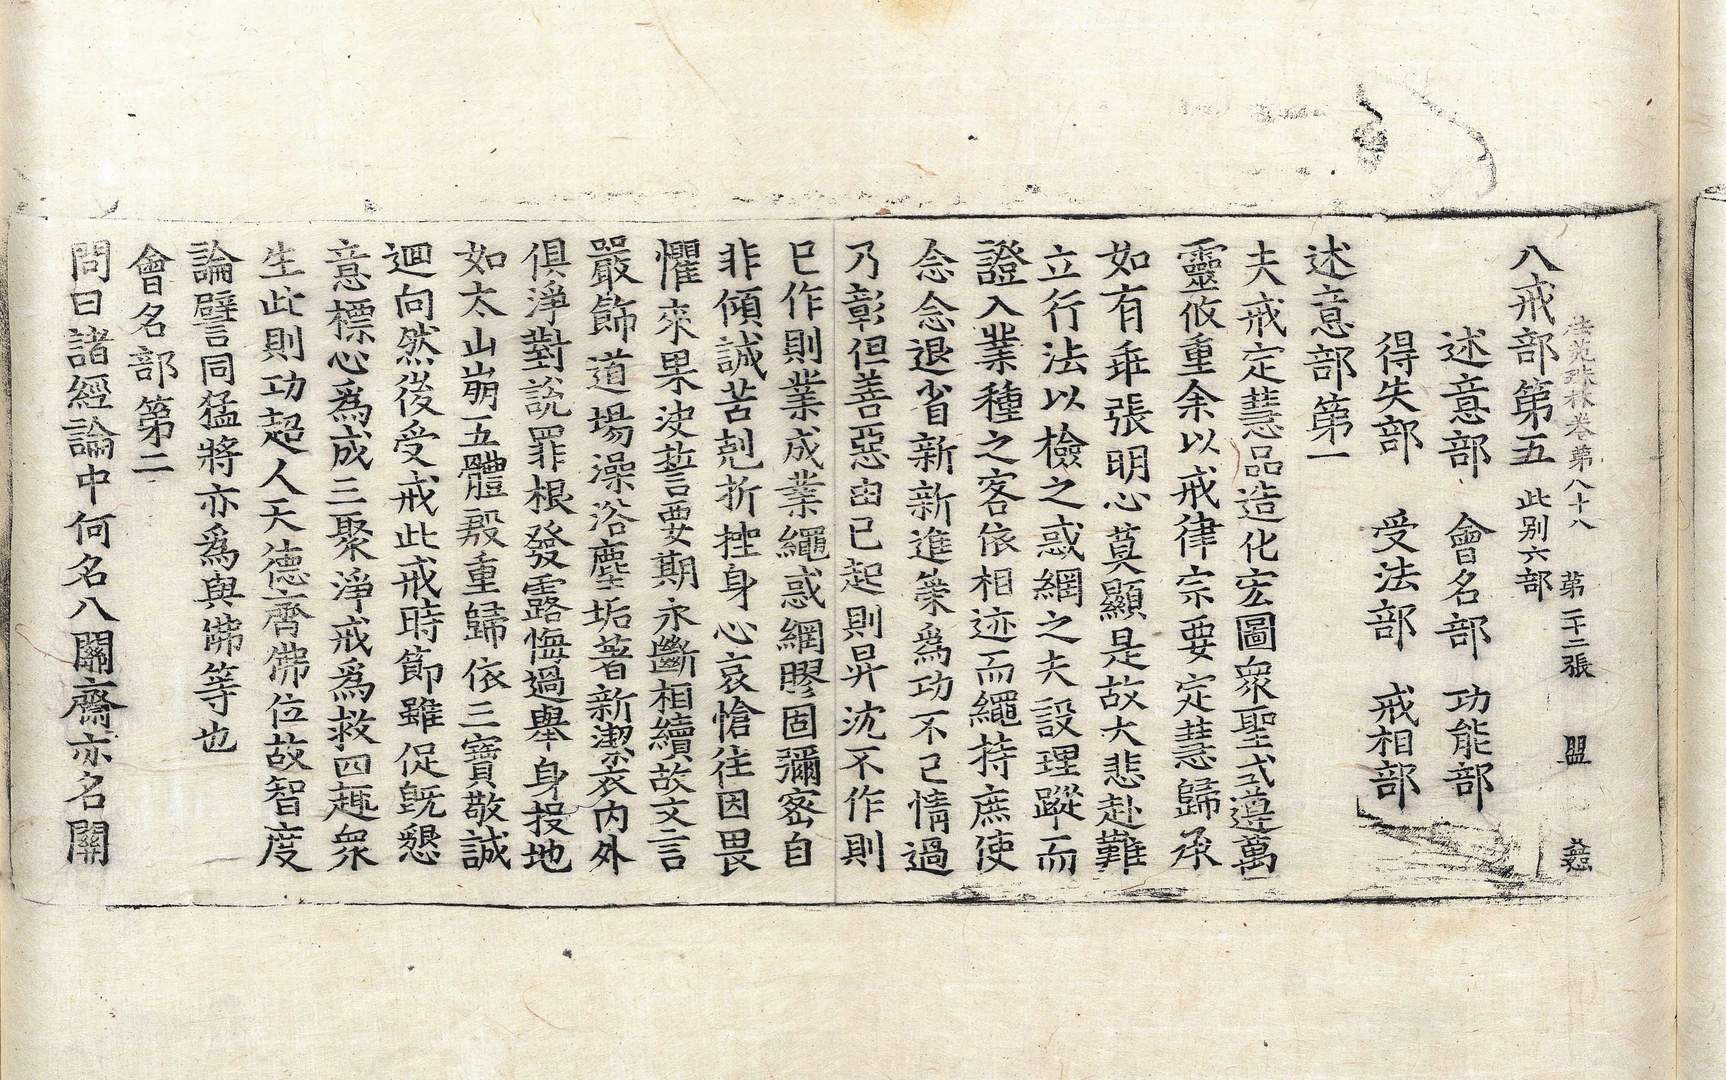 法苑珠林卷第八十八 第二十二張 盟
八戒部第五 此別六部
述意部 會名部 功能部
得失部 受法部 戒相部
述意部第一
夫戒定慧品造化宏圖衆聖式遵萬
靈攸重余以戒律宗要定慧歸承
如有乖張明心莫顯是故大悲赴難
立行法以檢之惑網之夫設理蹤而
證入業種之客依相迹而繩持庶使
念念退省新新進策爲功不已情過
乃彰但善惡由己起則昇沈不作則
已作則業成業繩惑網膠固彌密自
非傾誠苦剋折挫身心哀愴往因畏
懼來果決誓要期永斷相續故文言
嚴飾道場澡浴塵垢著新潔衣內外
俱淨對說罪根發露悔過舉身投地
如太山崩五體殷重歸依三寶敬誠
迴向然後受戒此戒時節雖促旣懇
意標心爲成三聚淨戒爲救四趣衆
生此則功超人天德齊佛位故智度
論譬同猛將亦爲與佛等也
會名部第二
問曰諸經論中何名八關齋亦名關